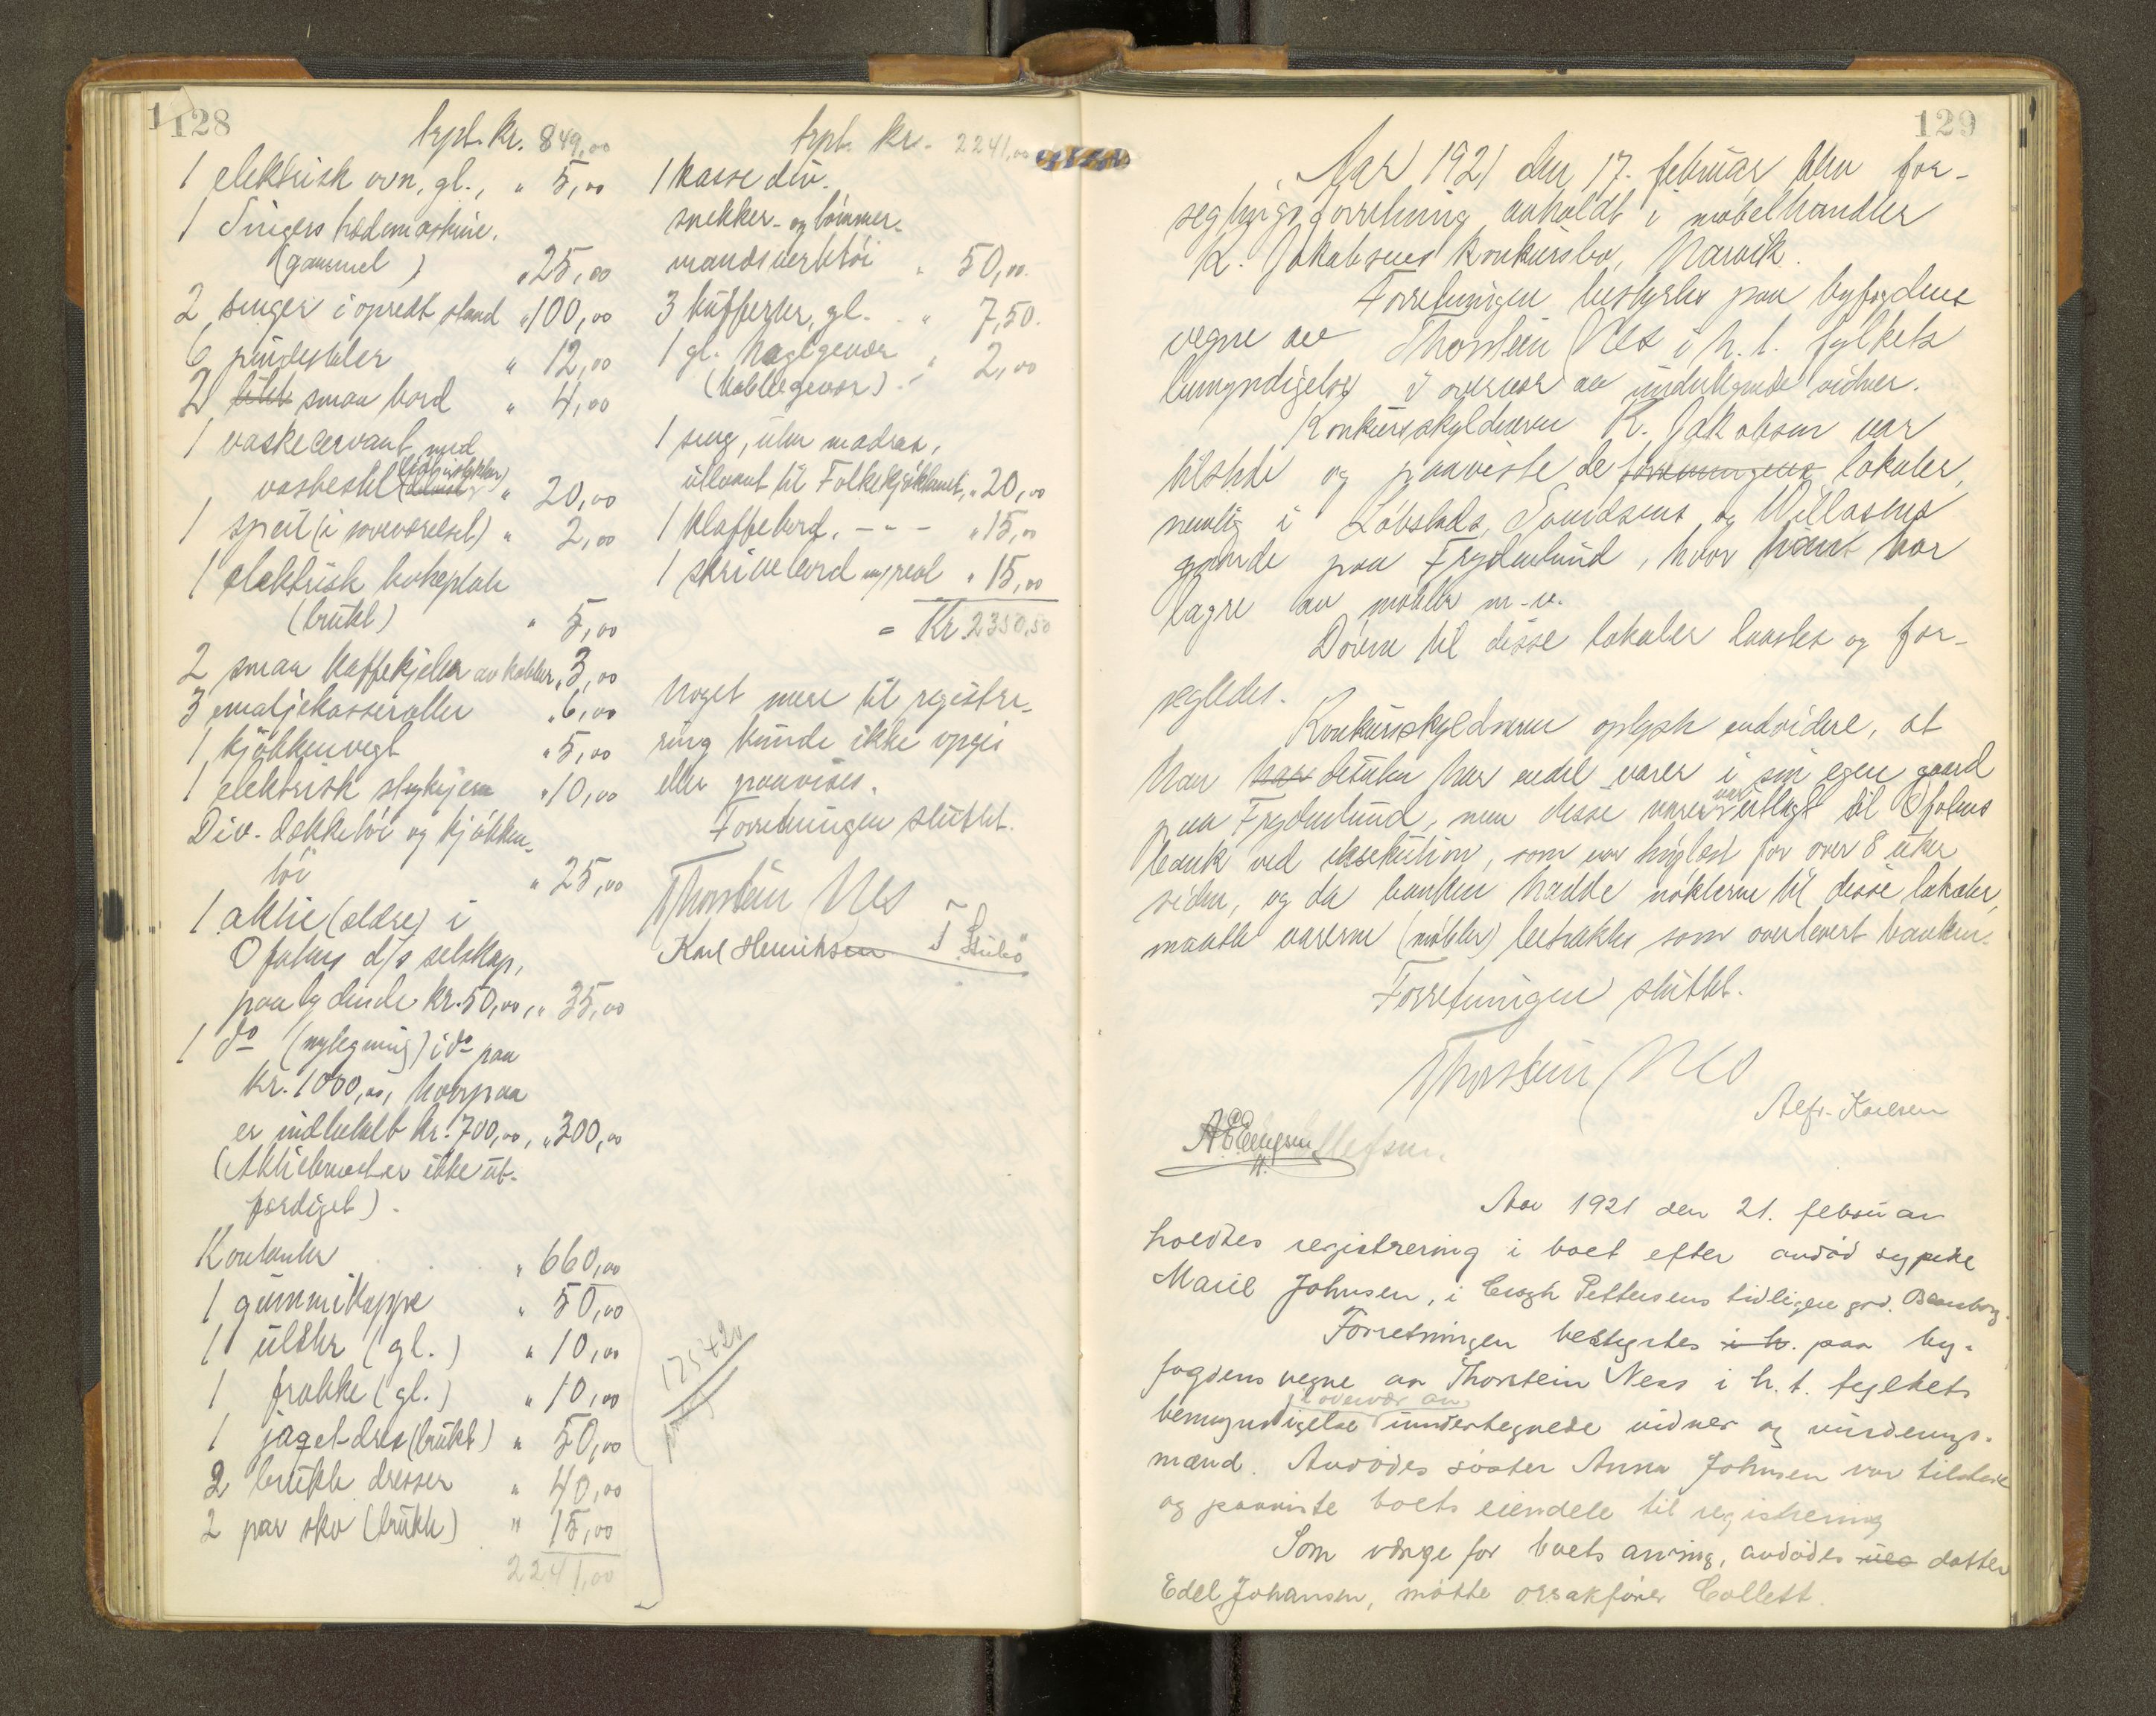 128
trpt. Kr. 849,00
1 elektrisk ovn, gl., " 5,00
1 Singers trædemaskine,
(gammel) " 25,00
2 senger i opredt stand " 100,00
6 pindestoler " 12,00
2 smaa bord " 4,00
1 vaskeservant med
vaskestel " 20,00
1 speil (i soveværelset) " 2,00
1 elektrisk kokeplate
(brukt) " 5,00
2 smaa kaffekjeler av kobber " 3,00
3 emaljekasseroller " 6,00
1 kjøkkenvegt " 5,00
1 elektrisk strykejern " 10,00
Div. dækketøi og kjøkken-
tøi " 25,00
1 aktie (ældre) i
Ofotens d/s selskap,
paalydende kr. 50,00, " 35,00
1 do (nytegning) i do paa
kr. 1000,00, hvorpaa
er indbetalt kr. 700,00, " 300,00
(Aktiebrevet er ikke ut-
færdiget).
Kontanter " 660,00
1 gummikappe " 50,00
1 ulster (gl.) " 10,00
1 frakke (gl.) " 10,00
1 jaqet-dres (brukt) " 50,00
2 brukte dresser " 40,00
2 par sko (brukte) " 15,00
2241,00
trpt. Kr. 2241,00
1 kasse div.
snekker- og tømmer-
mandsverktøi " 50,00
3 kufferter, gl. " 7,50
1 gl. haglgevær " 2,00
1 seng, uten madras,
utlaant til Folkekjøkkenet, " 20,00
1 klaffebord, - " - " 15,00
1 skrivebord m/reol " 15,00
= Kr. 2350,50
Noget mere til registre-
ring kunde ikke opgis
eller paavises.
Forretningen sluttet.
Thorstein Nes
Karl Henriksen
129
Aar 1921 den 17. februar blev for-
seglingsforretning avholdt i møbelhandler
K. Jakobsens konkursbo, Narvik.
Forretningen bestyrtes paa byfogdens
vegne av Thorstein Nes i h. t. fylkets
bemyndigelse i overvær av undertegnede vidner.
Konkursskyldneren K. Jakobsen var
tilstede og paaviste de lokaler,
nemlig i Løbslads, Davidsens og Willasens
gaarde paa Frydenlund, hvor han har
lagre av møbler m. v.
Dørene til disse lokaler laastes og for-
segledes.
Konkursskyldneren oplyste endvidere, at
han desuten har endel varer i sin egen gaard
paa Frydenlund, men disse varer var utlagt til Ofotens
bank ved eksekution, som var tinglæst for over 8 uker
siden, og da banken hadde nøklerne til disse lokaler,
maatte varerne (møbler) betraktes som overlevert banken.
Forretningen sluttet.
Thorstein Nes
Alfr. Karlsen
Aar 1921 den 21. februar
holdtes registrering i boet efter avdød sypike
Marie Johnsen, i Pettersens tidligere grd.
Forretningen bestyrtes i h. paa by-
fogdens vegne av Thorstein Ness i h. t. fylkets
bemyndigelse i overvær av undertegnede vidner og vurderings-
mænd. Avdødes søster Anna Johnsen var tilstede
og paaviste boets eiendele til registrering
Som værge for boets arving, avdødes datter
Edel Johansen, møtte orsakfører Collett.